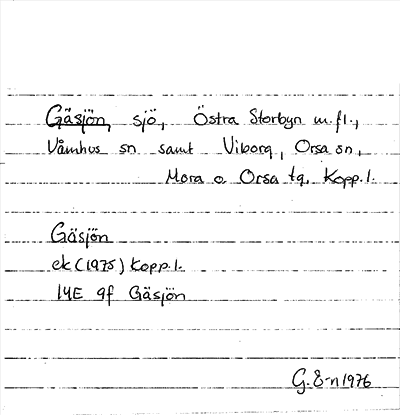 Gäsjön, sjö, Östra Storbyn m.fl.,
Våmhus sn samt Viborg, Orsa sn,
Mora o Orsa tg, Kopp.l.
Gäsjön
ek (1975) Kopp.l.
14E 9f Gäsjön
G. E-n 1976